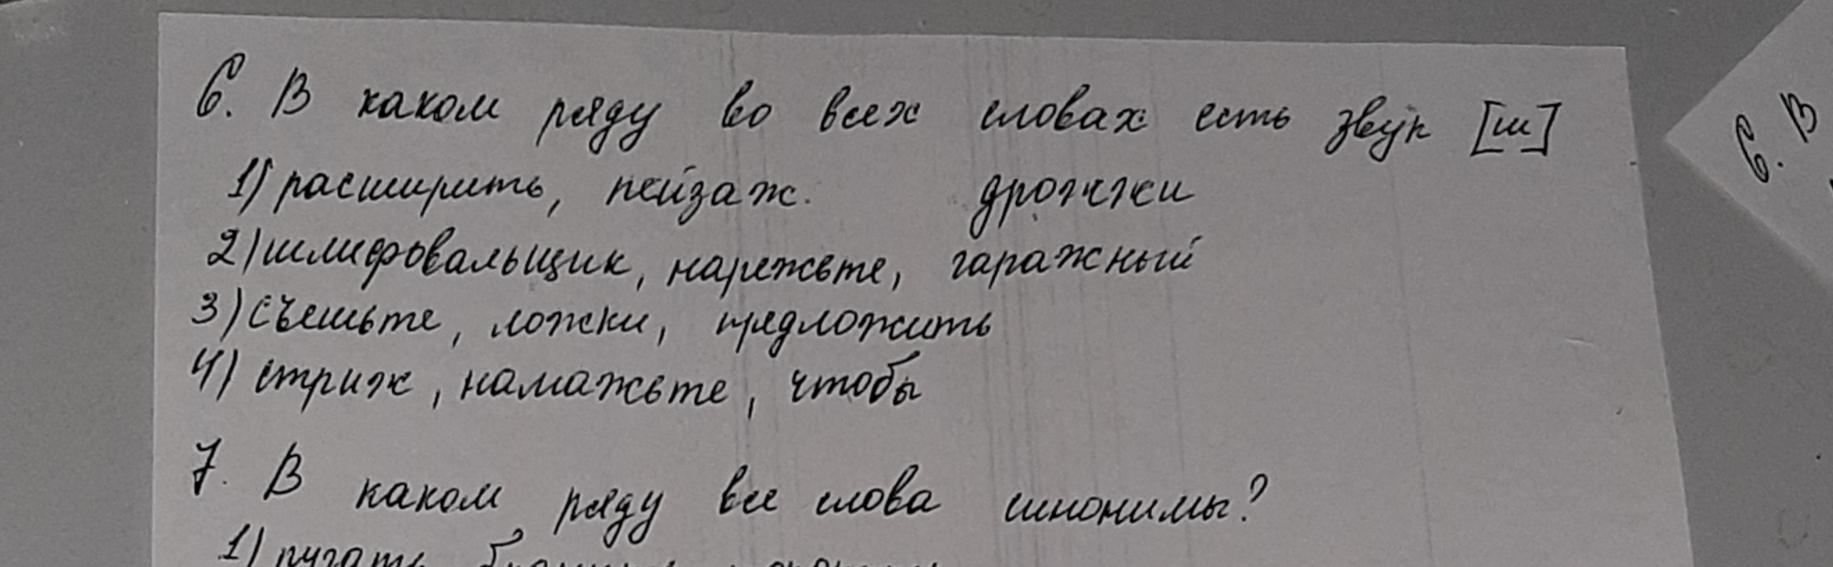 6. В каком ряду во всех словах есть звук [ш]
1) расширить, пейзаж. дрожжи
2) шлифовальщик, нарежьте, гаражный
3) съешьте, ложки, предложить
4) стриж, намажьте, чтобы
7. В каком ряду все слова синонимы?
1) пугать,
6. В